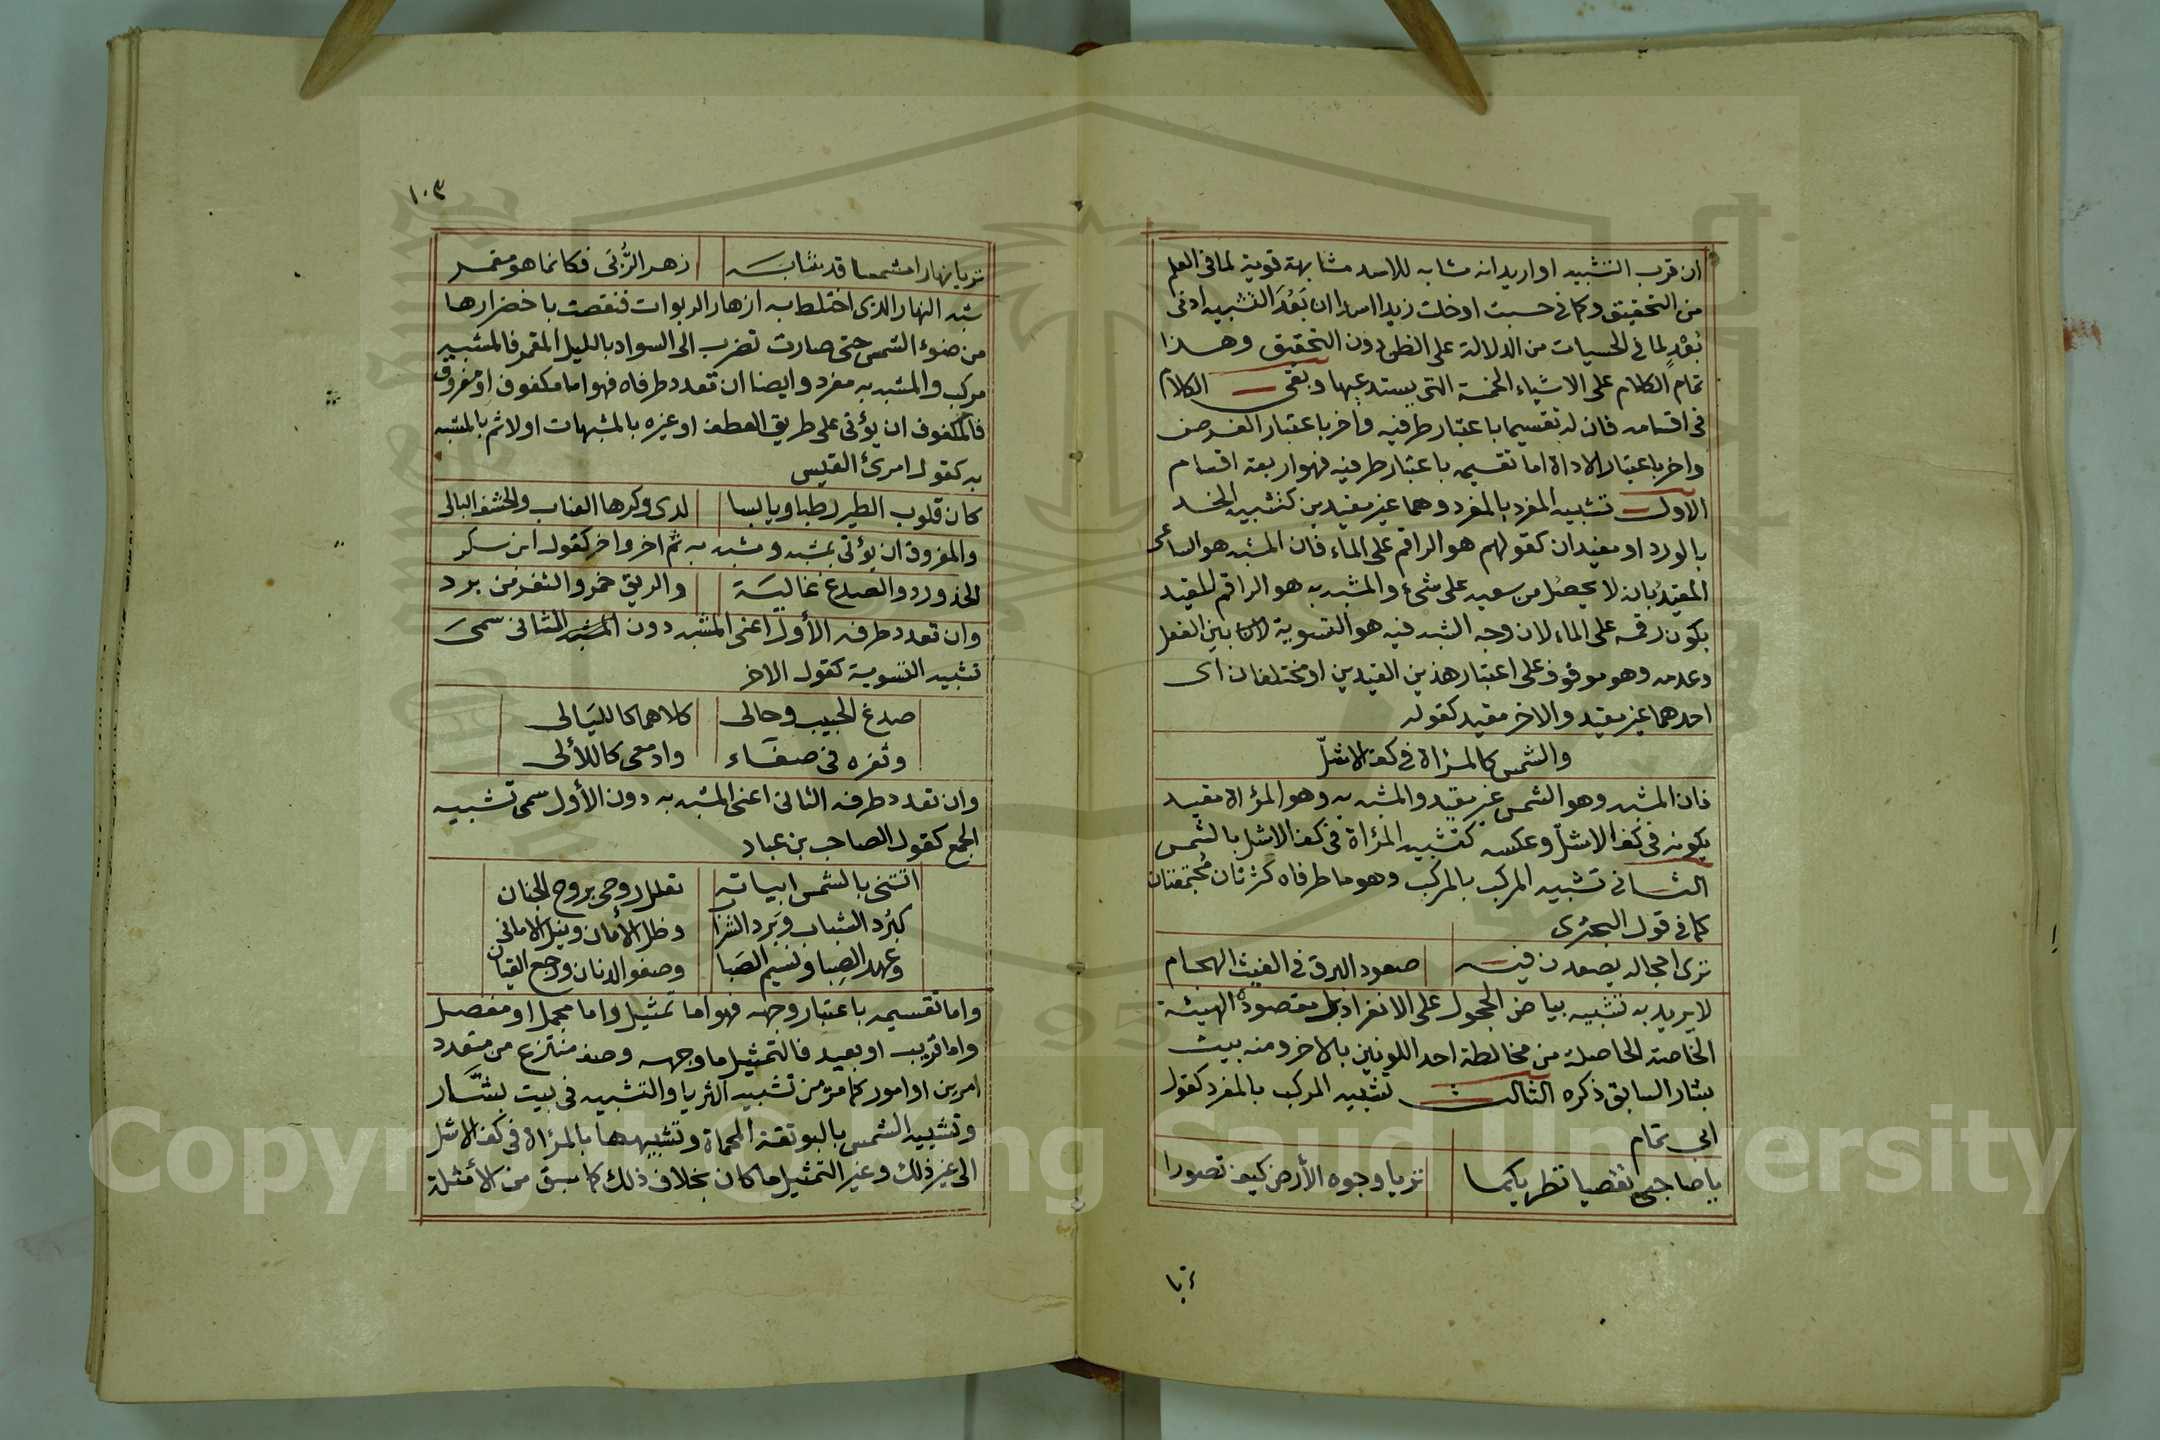 ان قرب التشبيه او اريد انه مشابه للاسد مشابهة قوية لما فى العلم
من التحقيق وكما فى حسبت او خلت زيدا اسدا ان بَعُدَ التشبيه ادنى
بُعْدٍ لما فى الحسيات من الدلالة على الظن دون التحقيق وهذا
تمام الكلام على الاشياء الخمسة التى يستدعيها وبقى الكلام
فى اقسامه فان له تقسيما باعتبار طرفيه واخر باعتبار الغرض
واخر باعتبار الاداة اما تقسيمه باعتبار طرفيه فهو اربعة اقسام
الاول تشبيه المفرد بالمفرد وهما غير مقيدين كتشبيه الخد
بالورد او مقيدان كقولهم هو الراقم على الماء فان المشبه هو الساعى
المقيد بان لا يحصل من سعيه على شئ والمشبه به هو الراقم المقيد
بكون رقمه على الماء لان وجه الشبه فيه هو التسوية بين الفعل
وعدمه وهو موقوف على اعتبار هذين القيدين او مختلفان اى
احدهما غير مقيد والاخر مقيد كقوله
والشمس كالمرآة فى كف الاشلّ
فان المشبه وهو الشمس غير مقيد والمشبه به وهو المرآة مقيد
بكونه فى كف الاشلّ وعكسه كتشبيه المرآة فى كف الاشل بالشمس
الثانى تشبيه المركب بالمركب وهو ما طرفاه كثرتان مجتمعتان
كما فى قول البحترى
ترى احجاله يصعدن فيه صعود البرق فى الغيث الجهام
لا يريد به تشبيه بياض الحجول على الانفراد بل مقصوده الهيئة
الخاصة الحاصلة من مخالطة احد اللونين بالاخر ومنه بيت
بشار السابق ذكره الثالث تشبيه المركب بالمفرد كقول
ابى تمام
يا صاحبى تقصيا نظريكما تريا وجوه الأرض كيف تصورا
تريا
١٠٣
تريا نهارا مشمسا قد شابه زهر الرُّبَى فكانما هو مقمر
شبه النهار الذى اختلط به ازهار الربوات فنقصت باخضرارها
من ضوء الشمس حتى صارت تضرب الى السواد بالليل المقمر فالمشبه
مركب والمشبه به مفرد وايضا ان تعدد طرفاه فهو اما ملفوف او مفروق
فالملفوف ان يؤتى على طريق العطف او غيره بالمشبهات اولا ثم بالمشبه
به كقول امرئ القيس
كان قلوب الطير رطبا ويابسا لدى وكرها العناب والحشف البالى
والمفروق ان يؤتى بمشبه ومشبه به ثم اخر واخر كقول ابن سكر
الخد ورد والصدغ غالية والريق خمر والثغر من برد
وان تعدد طرفه الأول اعنى المشبه دون الثانى سمى
تشبيه التسوية كقول الاخر
صدغ الحبيب وحالى كلاهما كالليالى
وثغره فى صفاء وادمعى كاللألى
وان تعدد طرفه الثانى اعنى المشبه به دون الأول سمى تشبيه
الجمع كقول الصاحب بن عباد
اتتنى بالشمس ابياته تعلل روحى بروح الجنان
كبُرْد الشباب وبَرد الشراب وظل الأمان ونيل الامانى
وعهد الصِبا ونسيم الصَبا وصفو الدنان ورجع القيان
واما تقسيمه باعتبار وجهه فهو اما تمثيل واما مجمل او مفصل
واما قريب او بعيد فالتمثيل ما وجهه وصف منتزع من متعدد
امرين او امور كما مرّ من تشبيه الثريا والتشبيه فى بيت بشّار
وتشبيه الشمس بالبوتقة المحماة وتشبيهها بالمرآة فى كف الاشل
الى غير ذلك وغير التمثيل ما كان بخلاف ذلك كما سبق من الأمثلة
Copyright © King Saud University
1957